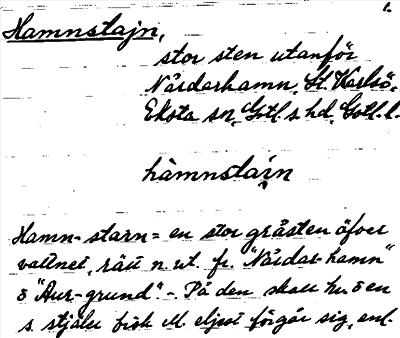 1.
Hamnstajn,
stor sten utanför
Nårdarhamn, St. Karlsö,
Eksta sn, Gotl. s. hd, Gotl. l.
hàmnstai̯n
Hamn-starn = en stor gråsten öfver
vattnet, rätt n. ut. fr. "Nårdar-hamn"
ö "Aur-grund". - På den skall hv. ö en
s. stjäler fisk el. eljest förgår sig, enl.